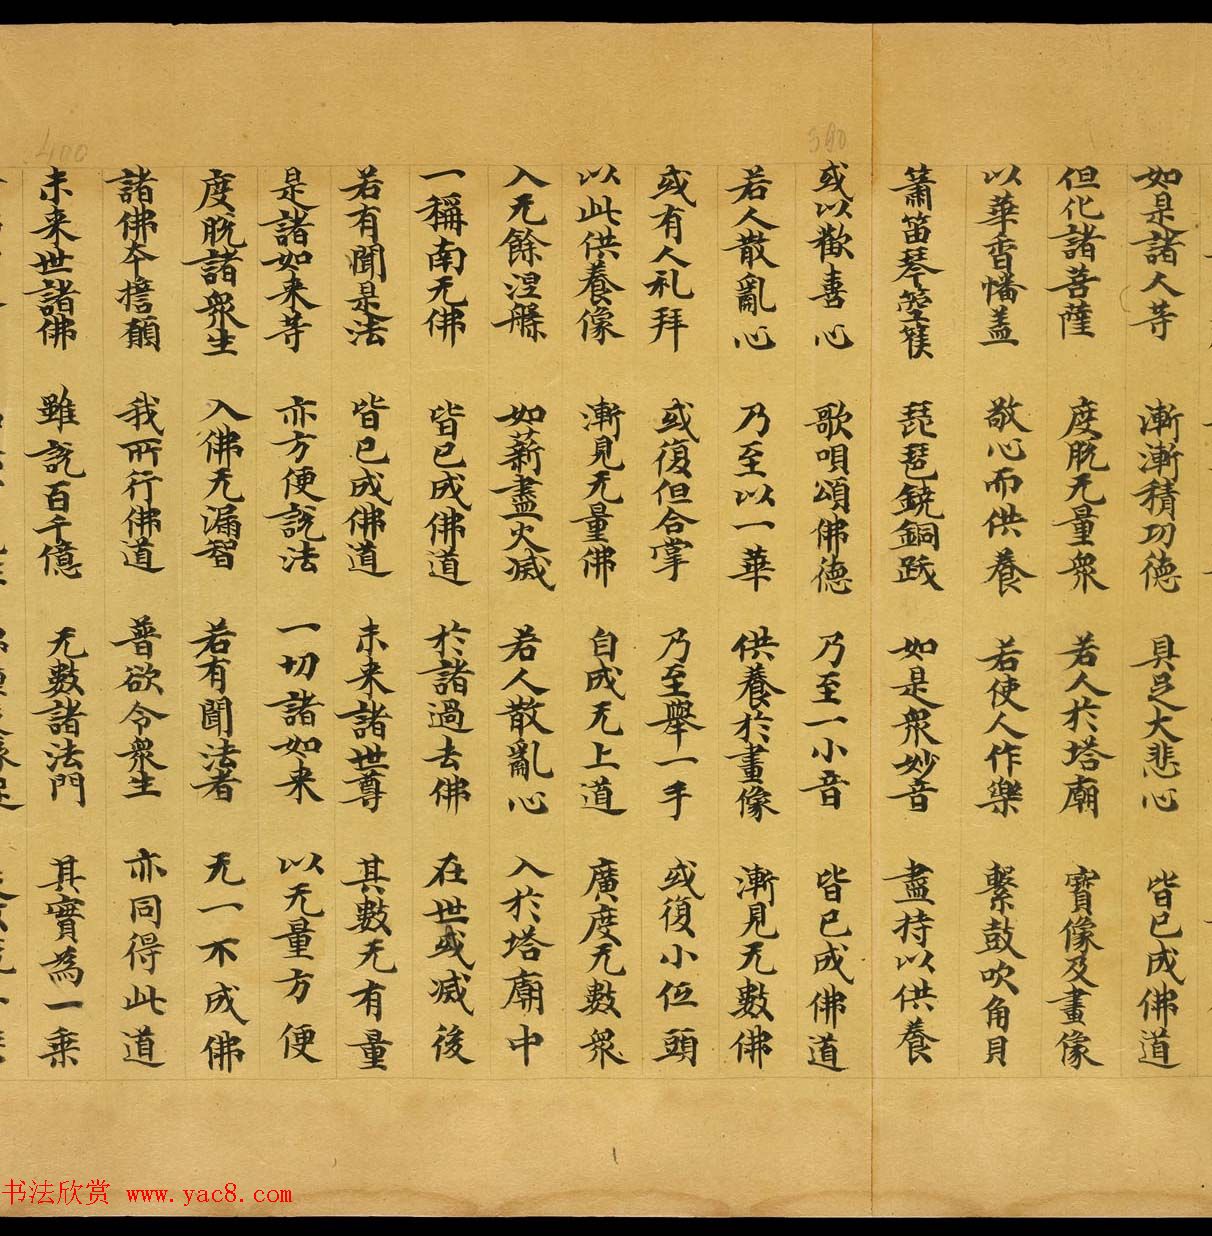 如是諸人等 漸漸積功德 具足大悲心 皆已成佛道
但化諸菩薩 度脫无量眾 若人於塔廟 寶像及畫像
以華香幡盖 敬心而供養 若使人作樂 擊鼓吹角貝
簫笛琴箜篌 琵琶鐃銅跋 如是眾妙音 盡持以供養
或以歡喜心 歌唄頌佛德 乃至一小音 皆已成佛道
若人散亂心 乃至以一華 供養於畫像 漸見无數佛
或有人礼拜 或復但合掌 乃至舉一手 或復小伍頭
以此供養像 漸見无量佛 自成无上道 廣度无數眾
入无餘涅槃 如薪盡火滅 若人散亂心 入於塔廟中
一稱南无佛 皆已成佛道 於諸過去佛 在世或滅後
若有聞是法 皆已成佛道 未来諸世尊 其數无有量
是諸如来等 亦方便說法 一切諸如来 以无量方便
度脫諸眾生 入佛无漏智 若有聞法者 无一不成佛
諸佛本擔願 我所行佛道 普欲令眾生 亦同得此道
未来世諸佛 雖說百千億 无數諸法門 其實為一乘
380
400
书法欣赏 www.yac8.com